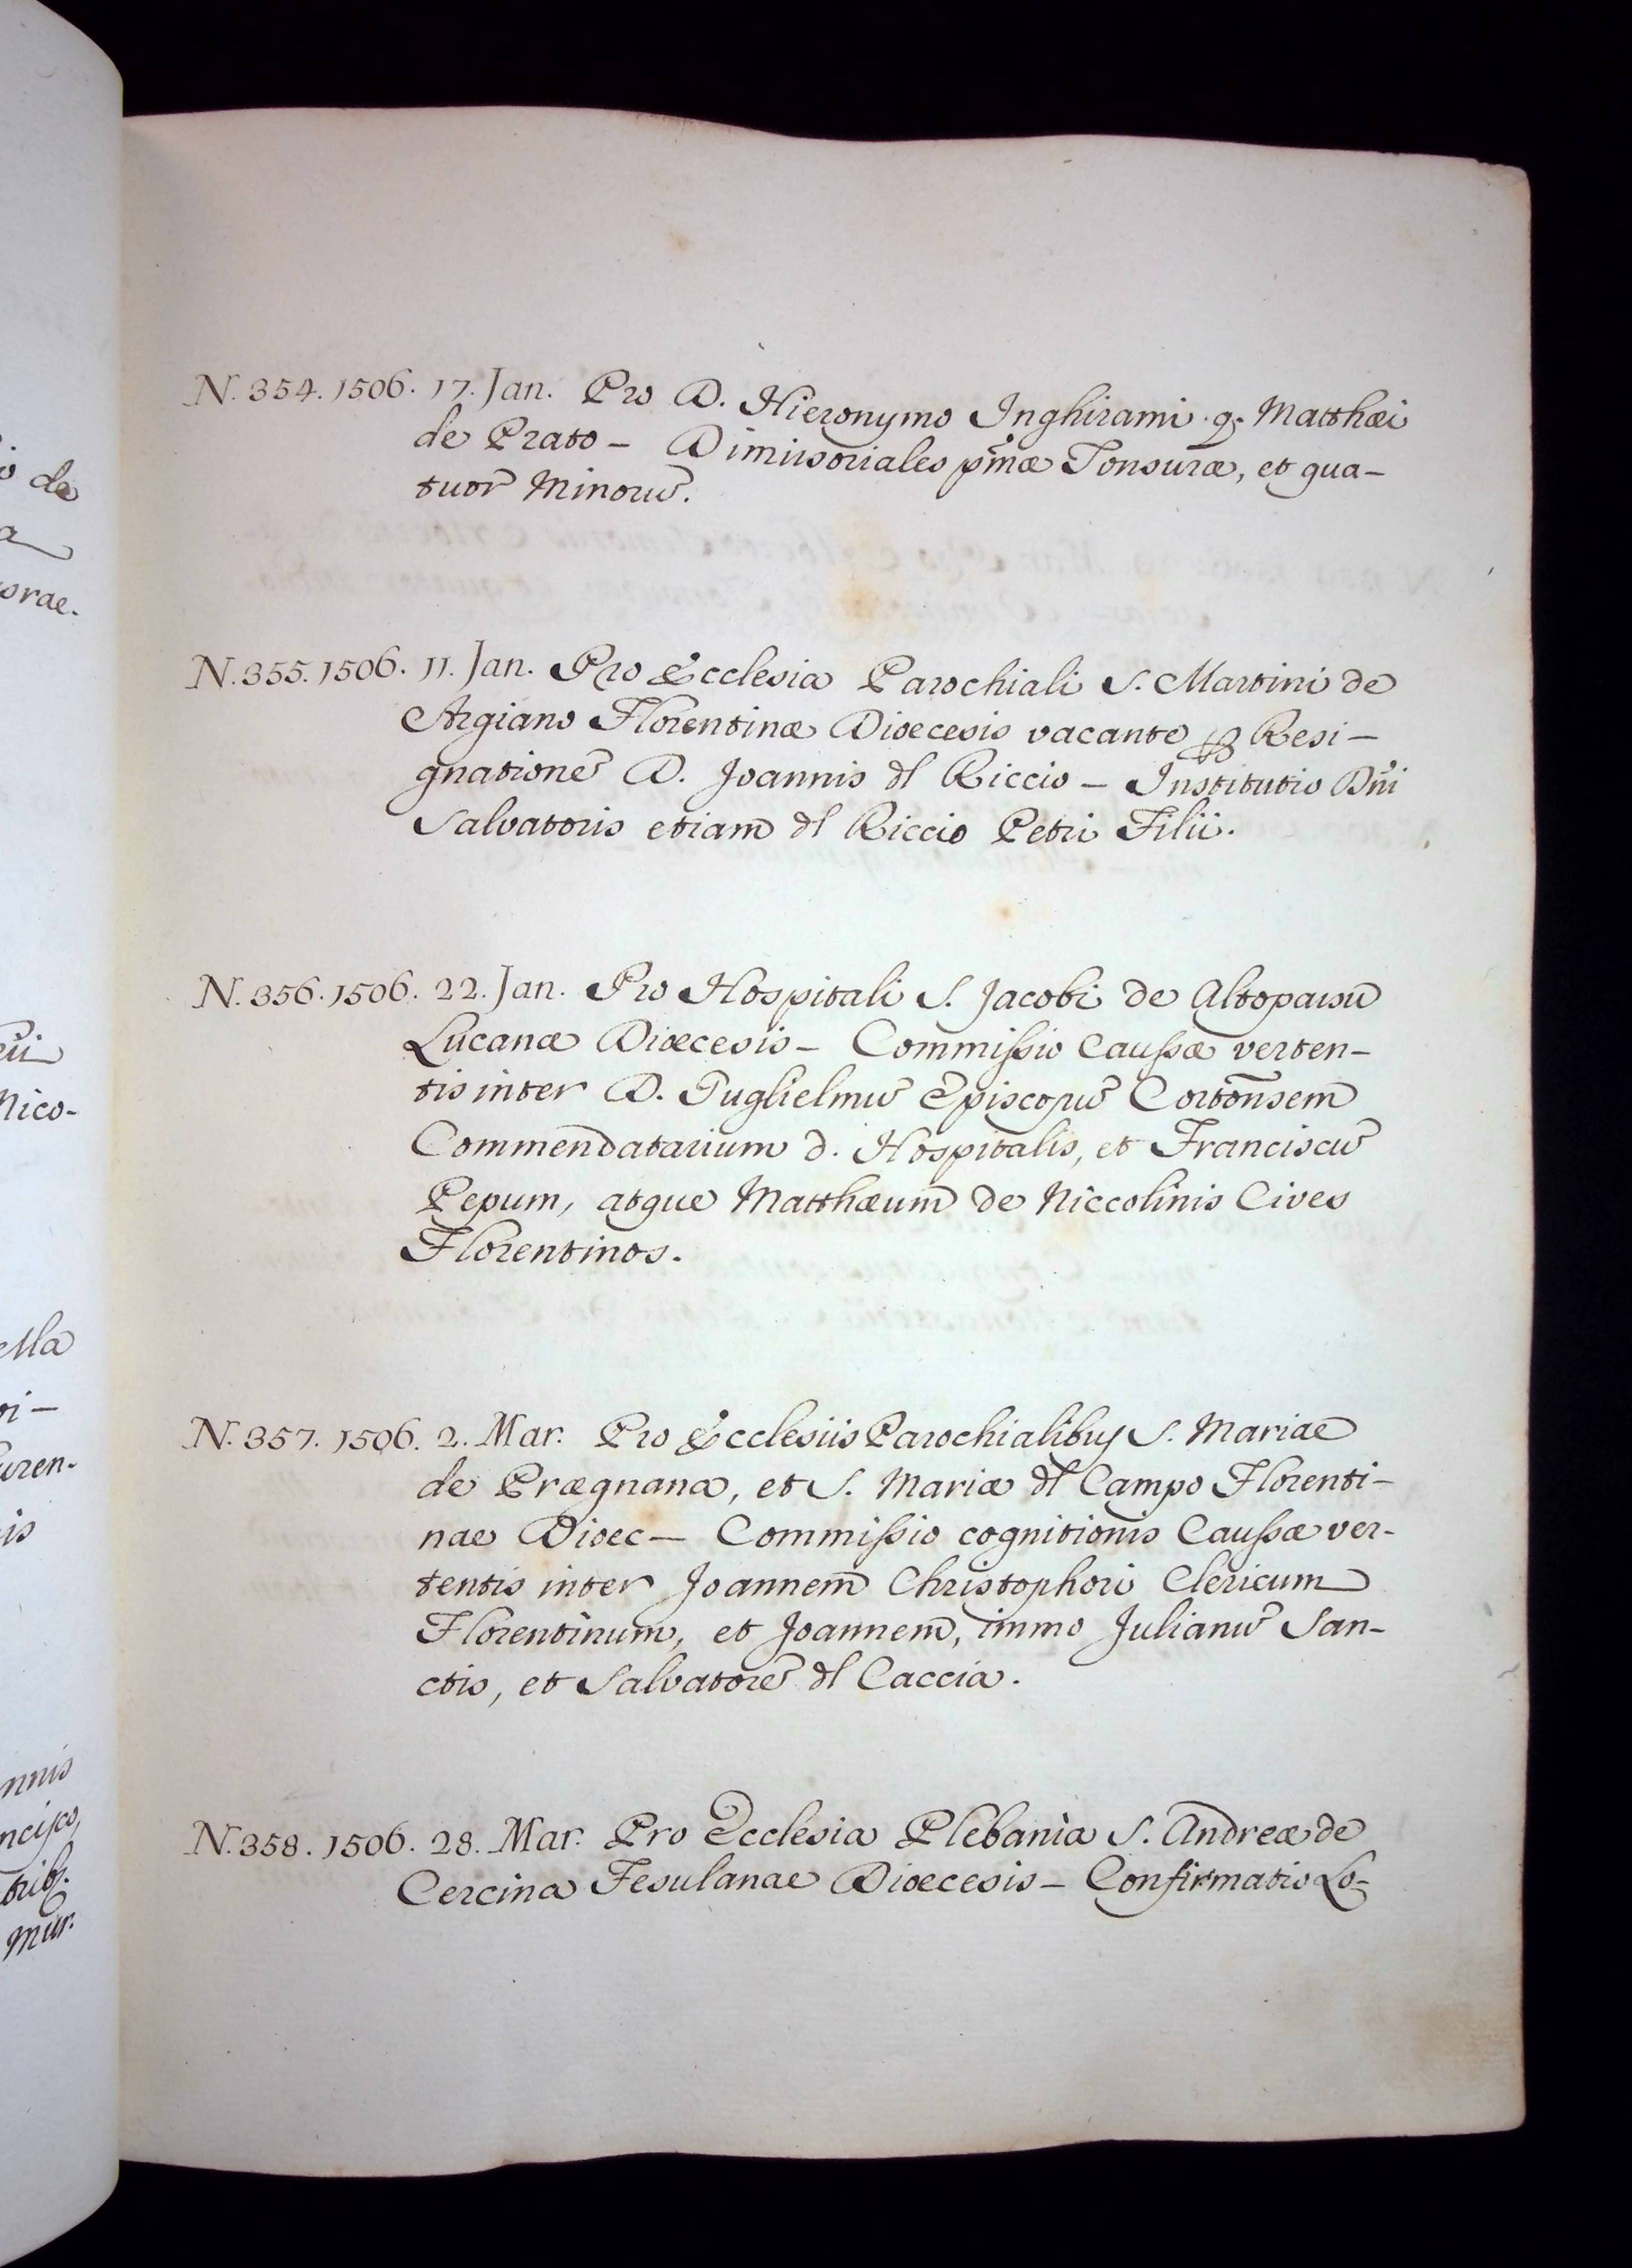 o de
a
srae.
Nico-
ella
oi-
uren-
is
nnis
ncisco,
mur.
N. 354. 1506. 17. Jan. Pro D. Hieronymo Inghirami q. Matthæi
de Prato - Dimissoriales pm̃æ Tonsuræ, et qua-
tuor̃ Minorũ.
N. 355. 1506. 11. Jan. Pro Ecclesia Parochiali S. Martini de
Argiano Florentinæ Dioecesis vacante ꝑ Resi-
gnationẽ D. Joannis dl Riccio - Institutio Dñi
Salvatoris etiam̃ dl Riccio Petri Filii.
N. 356. 1506. 22. Jan. Pro Hospitali S. Jacobi de Altopassũ
Lucanæ Diœcesis - Commissio Caussæ verten-
tis inter D. Guglielmũ Episcopũ Cortoñsem
Commendatarium d. Hospitalis, et Franciscũ
Pepum, atque Matthæum de Niccolinis Cives
Florentinos.
N. 357. 1506. 2. Mar. Pro Ecclesiis Parochialibus S. Mariae
de Prægnana, et S. Mariæ dl Campo Florenti-
nae Dioec - Commissio cognitionis Caussæ ver-
tentis inter Joannem Christophori Clericum
Florentinum, et Joannem, immo Julianũ San-
ctis, et Salvatorẽ dl Caccia.
N. 358. 1506. 28. Mar. Pro Ecclesia Plebania S. Andreæ de
Cercina Fesulanae Dioecesis - Confirmatio Lo-